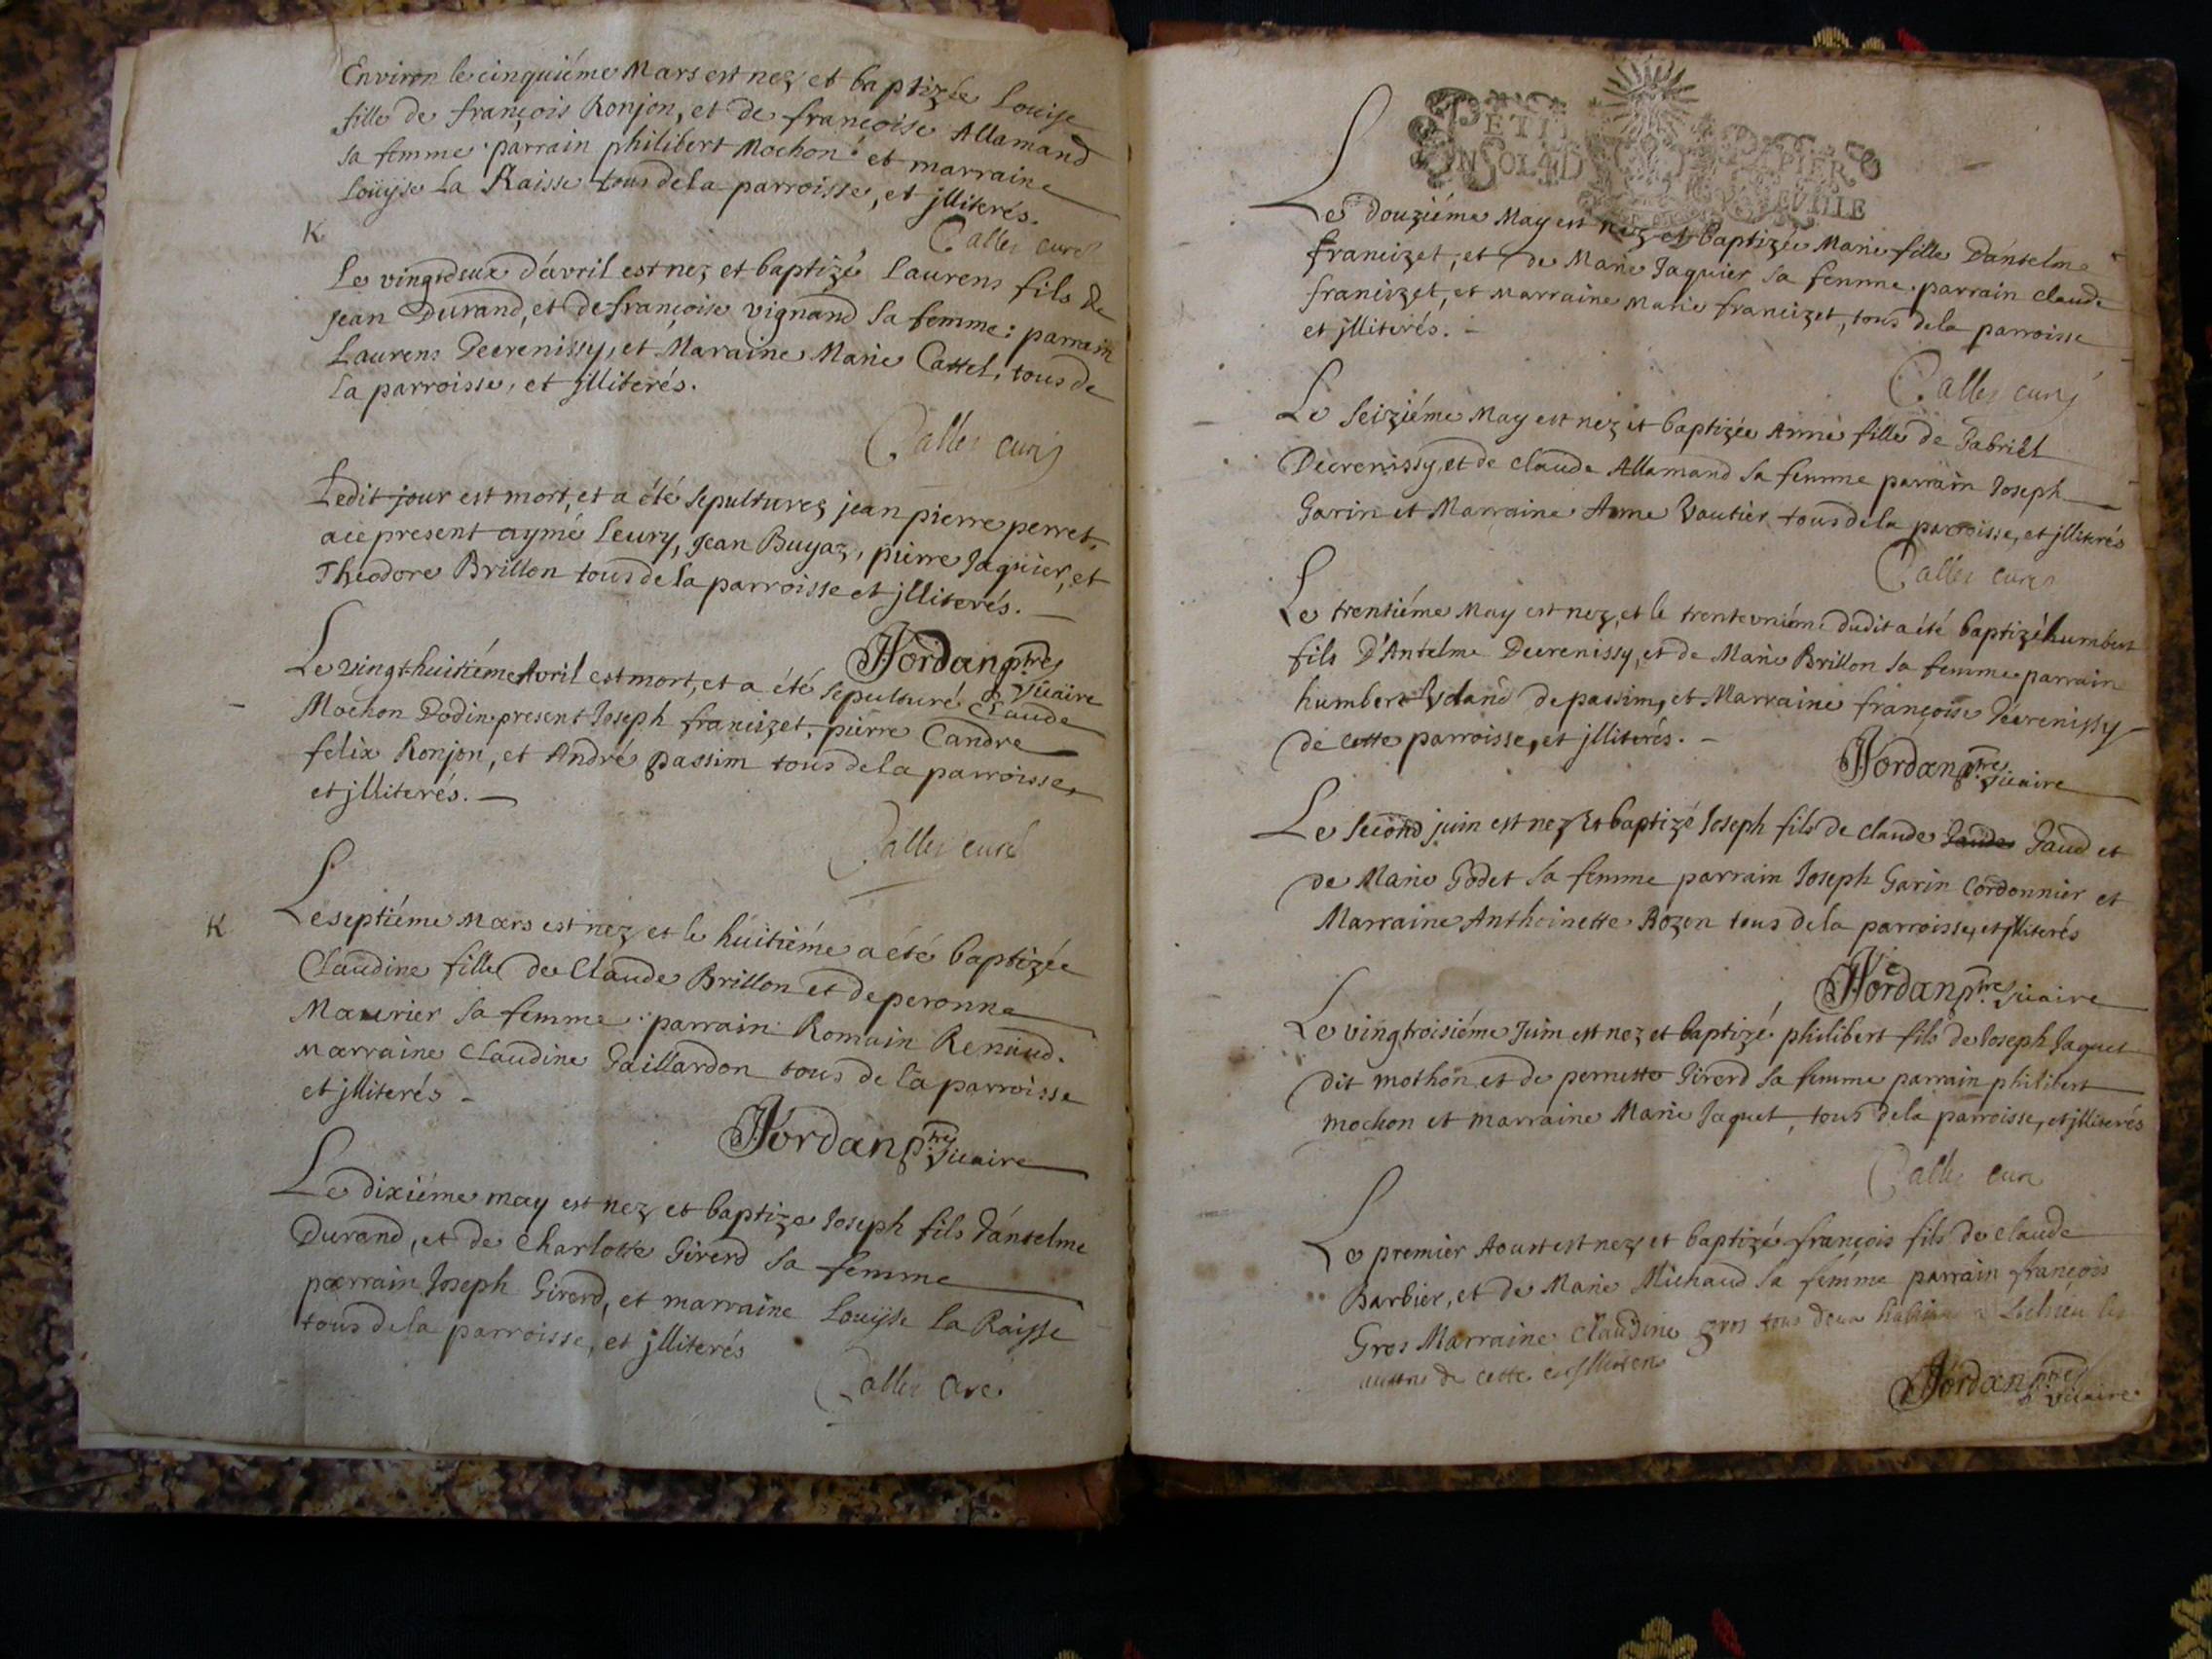 Environ le cinquiéme Mars est nez et baptizée Louise
fille de françois Ronjon, et de françoise Allamand
sa femme parrain philibert Mochon et marraine
Loüyse La Raisse tous de la parroisse, et jlliterés.
Caller curé
K
Le vingtdeux d'avril est nez et baptizé Laurens fils de
Jean Durand, et de françoise vignand sa femme: parrain
Laurens Decrenissy, et Maraine Marie Cattel, tous de
la parroisse, et jlliterés.
Caller curé
Ledit jour est mort, et a été sepulturez jean pierre perret,
ace present aymé Leury, Jean Buyaz, pierre Jaquier, et
Theodore Brillon tous de la parroisse et jlliterés.
Jordan ptre vicaire
Le vingt huitiéme Avril est mort, et a été sepulturé Claude
Mochon Dodin present Joseph francizet, pierre Candre
felix Ronjon, et André passim tous de la parroisse,
et jlliterés.
Caller curé
K
Le septiéme Mars est nez et le húitiéme a été baptizée
Claudine fille de Claude Brillon et de peronne
Maurier sa femme parrain Romain Renaud.
Marraine Claudine Gaillardon tous de la parroisse
et jlliterés
Jordan ptre vicaire
Le dixiéme may est nez et baptize Joseph fils d'antelme
Durand, et de Charlotte Girerd sa femme
parrain Joseph Girerd, et marraine Louyse La Raisse
tous de la parroisse, et jlliterés
Caller curé
PETIT PAPIER
Le douziéme May est nez et baptizée Marie fille D'antelme
francizet, et de Marie Jaquier sa femme. parrain Claude
francizet, et Marraine Marie francizet, tous de la parroisse
et jlliterés.
Caller curé
Le seiziéme May est nez et baptizée Anne fille de Gabriel
Decrenissy, et de Claude Allamand sa femme parrain Joseph
Garin et Marraine Anne Vautier tous de la parroisse, et jlliterés
Caller curé
Le trentiéme May est nez, et le trenteuniéme dudit a été baptizé humbert
fils D'Antelme Decrenissy, et de Marie Brillon sa femme parrain
humbert de passim, et Marraine françoise Decrenissy
de cette parroisse, et jlliterés.
Jordan ptre vicaire
Le second juin est nez et baptizé Joseph fils de Claude Gaud et
de Marie Godet sa femme parrain Joseph Garin Cordonnier et
Marraine Anthoinette Rozon tous de la parroisse, et jlliterés
Jordan ptre vicaire
Le vingtroisiéme Juin est nez et baptizé philibert fils de Joseph Jaquet
dit mochon et de pernette Girerd sa femme parrain philibert
mochon et marraine Marie Jaquet, tous de la parroisse, et jlliterés
Caller curé
Le premier Aoust est nez et baptizé françois fils de Claude
Barbier, et de Marie Michaud sa femme parrain françois
Gros Marraine Claudine gros tous deux
de cette
Jordan ptre vicaire